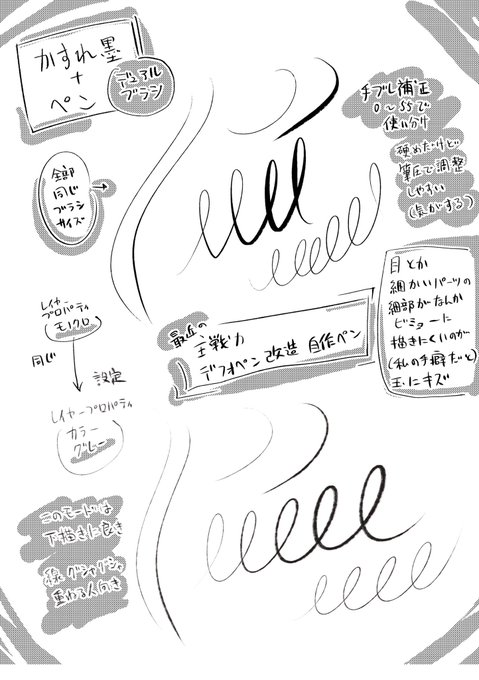 かすれ墨
+
ペン
デュアル
ブラシ
手ブレ補正
0〜55で
使い分け
硬めだけど
筆圧で調整
しやすい
(気がする)
全部
同じ
ブラシ
サイズ
目とか
細かいパーツの
細部がなんか
ビミョーに
描きにくいのが
(私の手癖だと)
玉にキズ
最近の
主戦力
デフォペン改造 自作ペン
レイヤー
プロパティ
モノクロ
同じ
設定
レイヤープロパティ
カラー
グレー
このモードは
下描きに良き
線 グシャグシャ
重ねる人向き